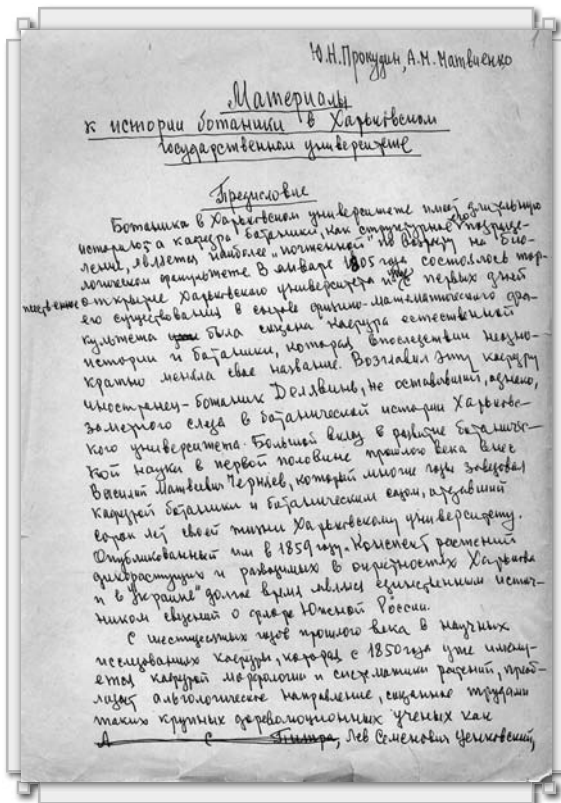 Ю.Н. Прокудин, А.М. Матвиенко
Материалы
к истории ботаники в Харьковском
государственном университете
Предисловие
Ботаника в Харьковском университете имеет длительную
историю, а кафедра ботаники, как структурное его подразде-
ление, является наиболее „почтенной" по возрасту на био-
логическом факультете. В январе 1805 года состоялось тор-
жественное открытие Харьковского университета и с первых дней
его существования в составе физико-математического фа-
культета была создана кафедра естественной
истории и ботаники, которая впоследствии неодно-
кратно меняла свое название. Возглавил эту кафедру
иностранец-ботаник Делявинь, не оставивший, однако,
заметного следа в ботанической истории Харьковс-
кого университета. Большой вклад в развитие ботаничес-
кой науки в первой половине прошлого века внес
Василий Матвеевич Черняев, который многие годы заведовал
кафедрой ботаники и ботаническим садом, отдавший
сорок лет своей жизни Харьковскому университету.
Опубликованный им в 1859 году „Конспект растений
дикорастущих и разводимых в окрестностях Харькова
и в Украине" долгое время являлся единственным источ-
ником сведений о флоре Южной России.
С шестидесятых годов прошлого века в научных
исследованиях кафедры, которая с 1850 года уже имену-
ется кафедрой морфологии и систематики растений, преоб-
ладает альгологическое направление, созданное трудами
таких крупных дореволюционных ученых как
А С Питра, Лев Семенович Ценковский,